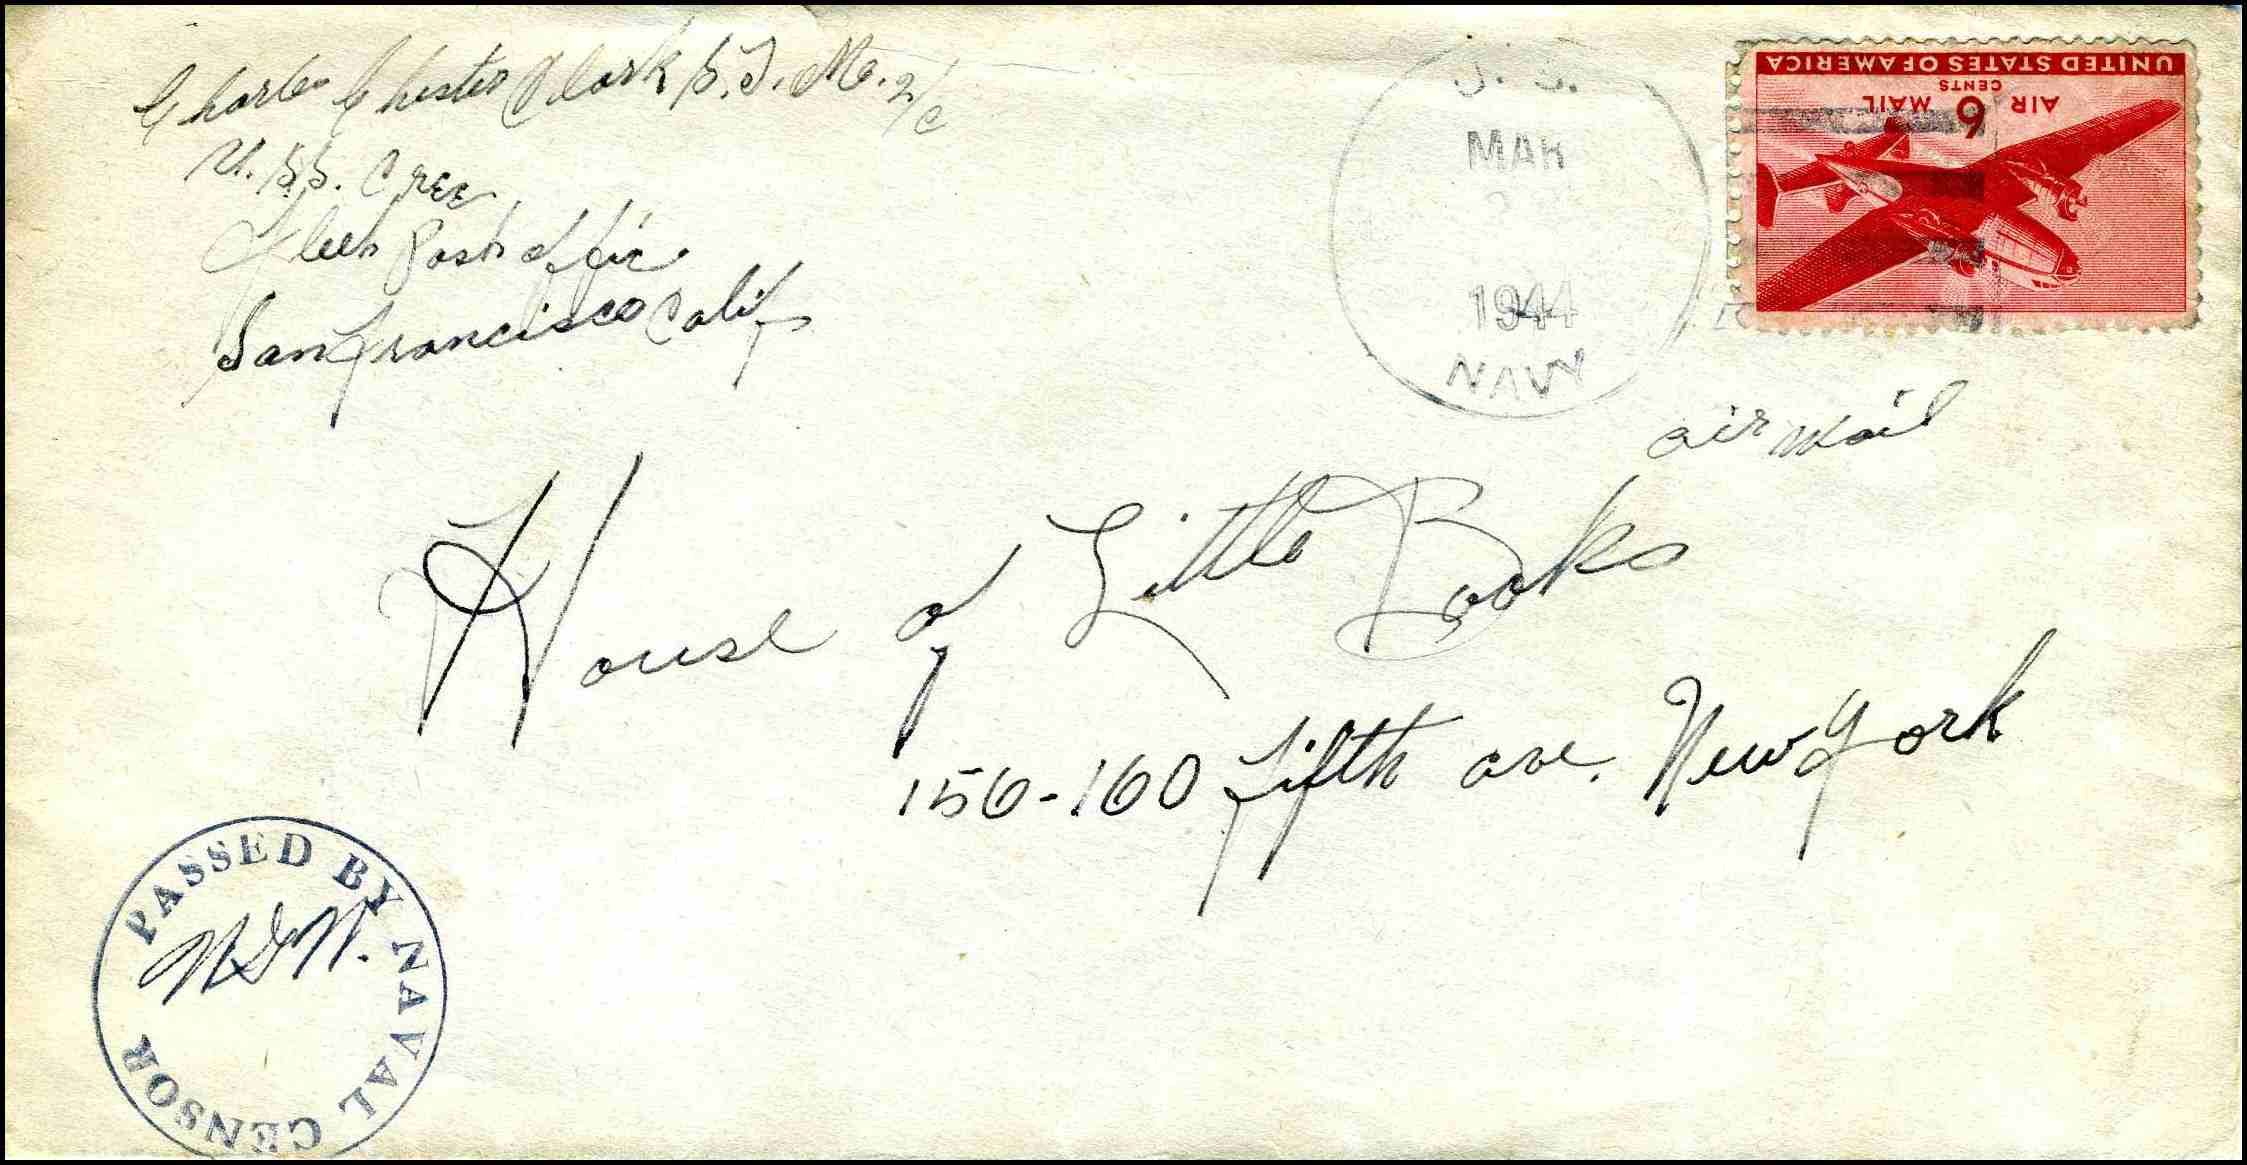 Charles Chester Clark S.F. M. 2/c
U.S.S. Cree
Fleet Post Office
San Francisco Calif
U. S.
MAR
1944
NAVY
UNITED STATES OF AMERICA
6
CENTS
AIR MAIL
air mail
House of Little Books
156-160 Fifth ave. New York
PASSED BY NAVAL CENSOR